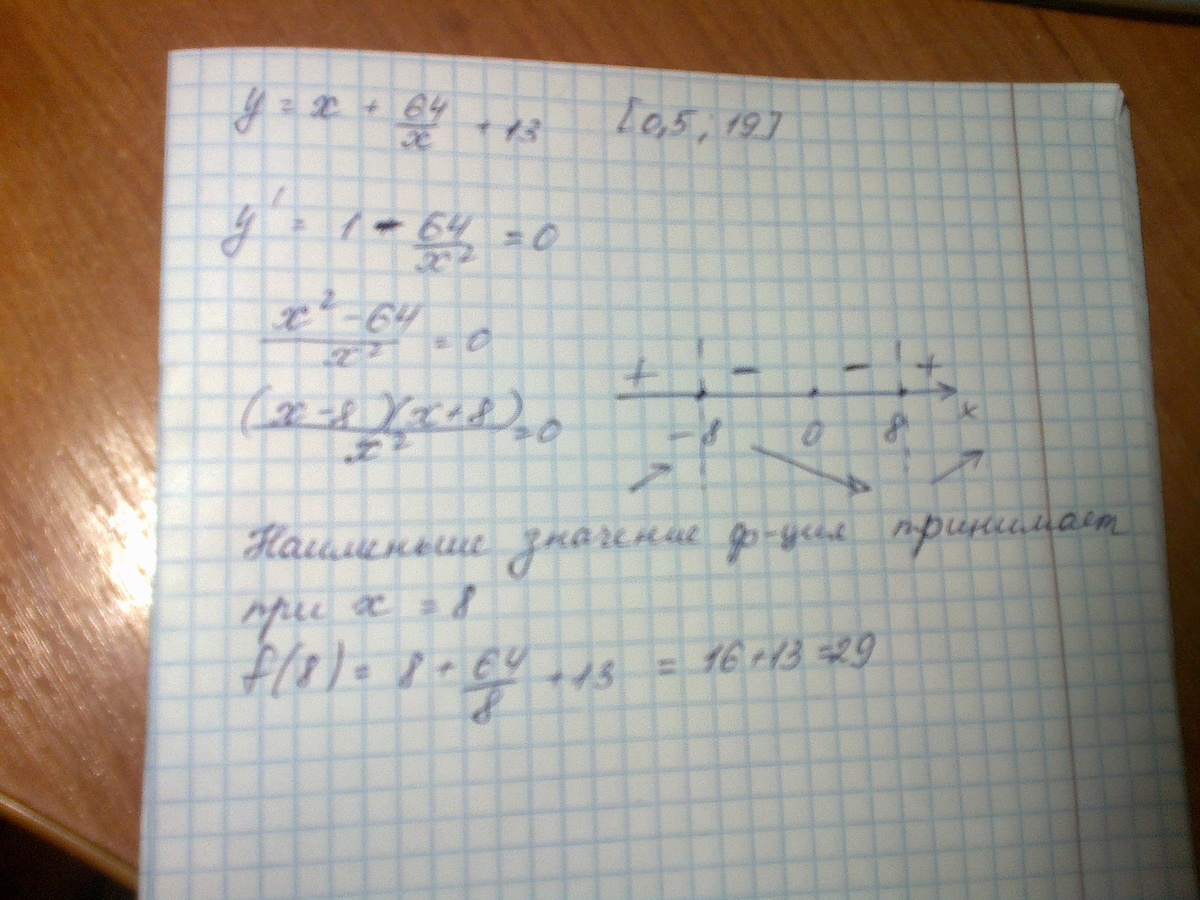 y = x + 64/x + 13   [0,5 ; 19]
y' = 1 - 64/x² = 0
x² - 64 / x² = 0
(x - 8)(x + 8) / x² = 0
+ - - +
-8 0 8 x
Наименьше значение ф-ция принимает
при x = 8
f(8) = 8 + 64/8 + 13 = 16 + 13 = 29